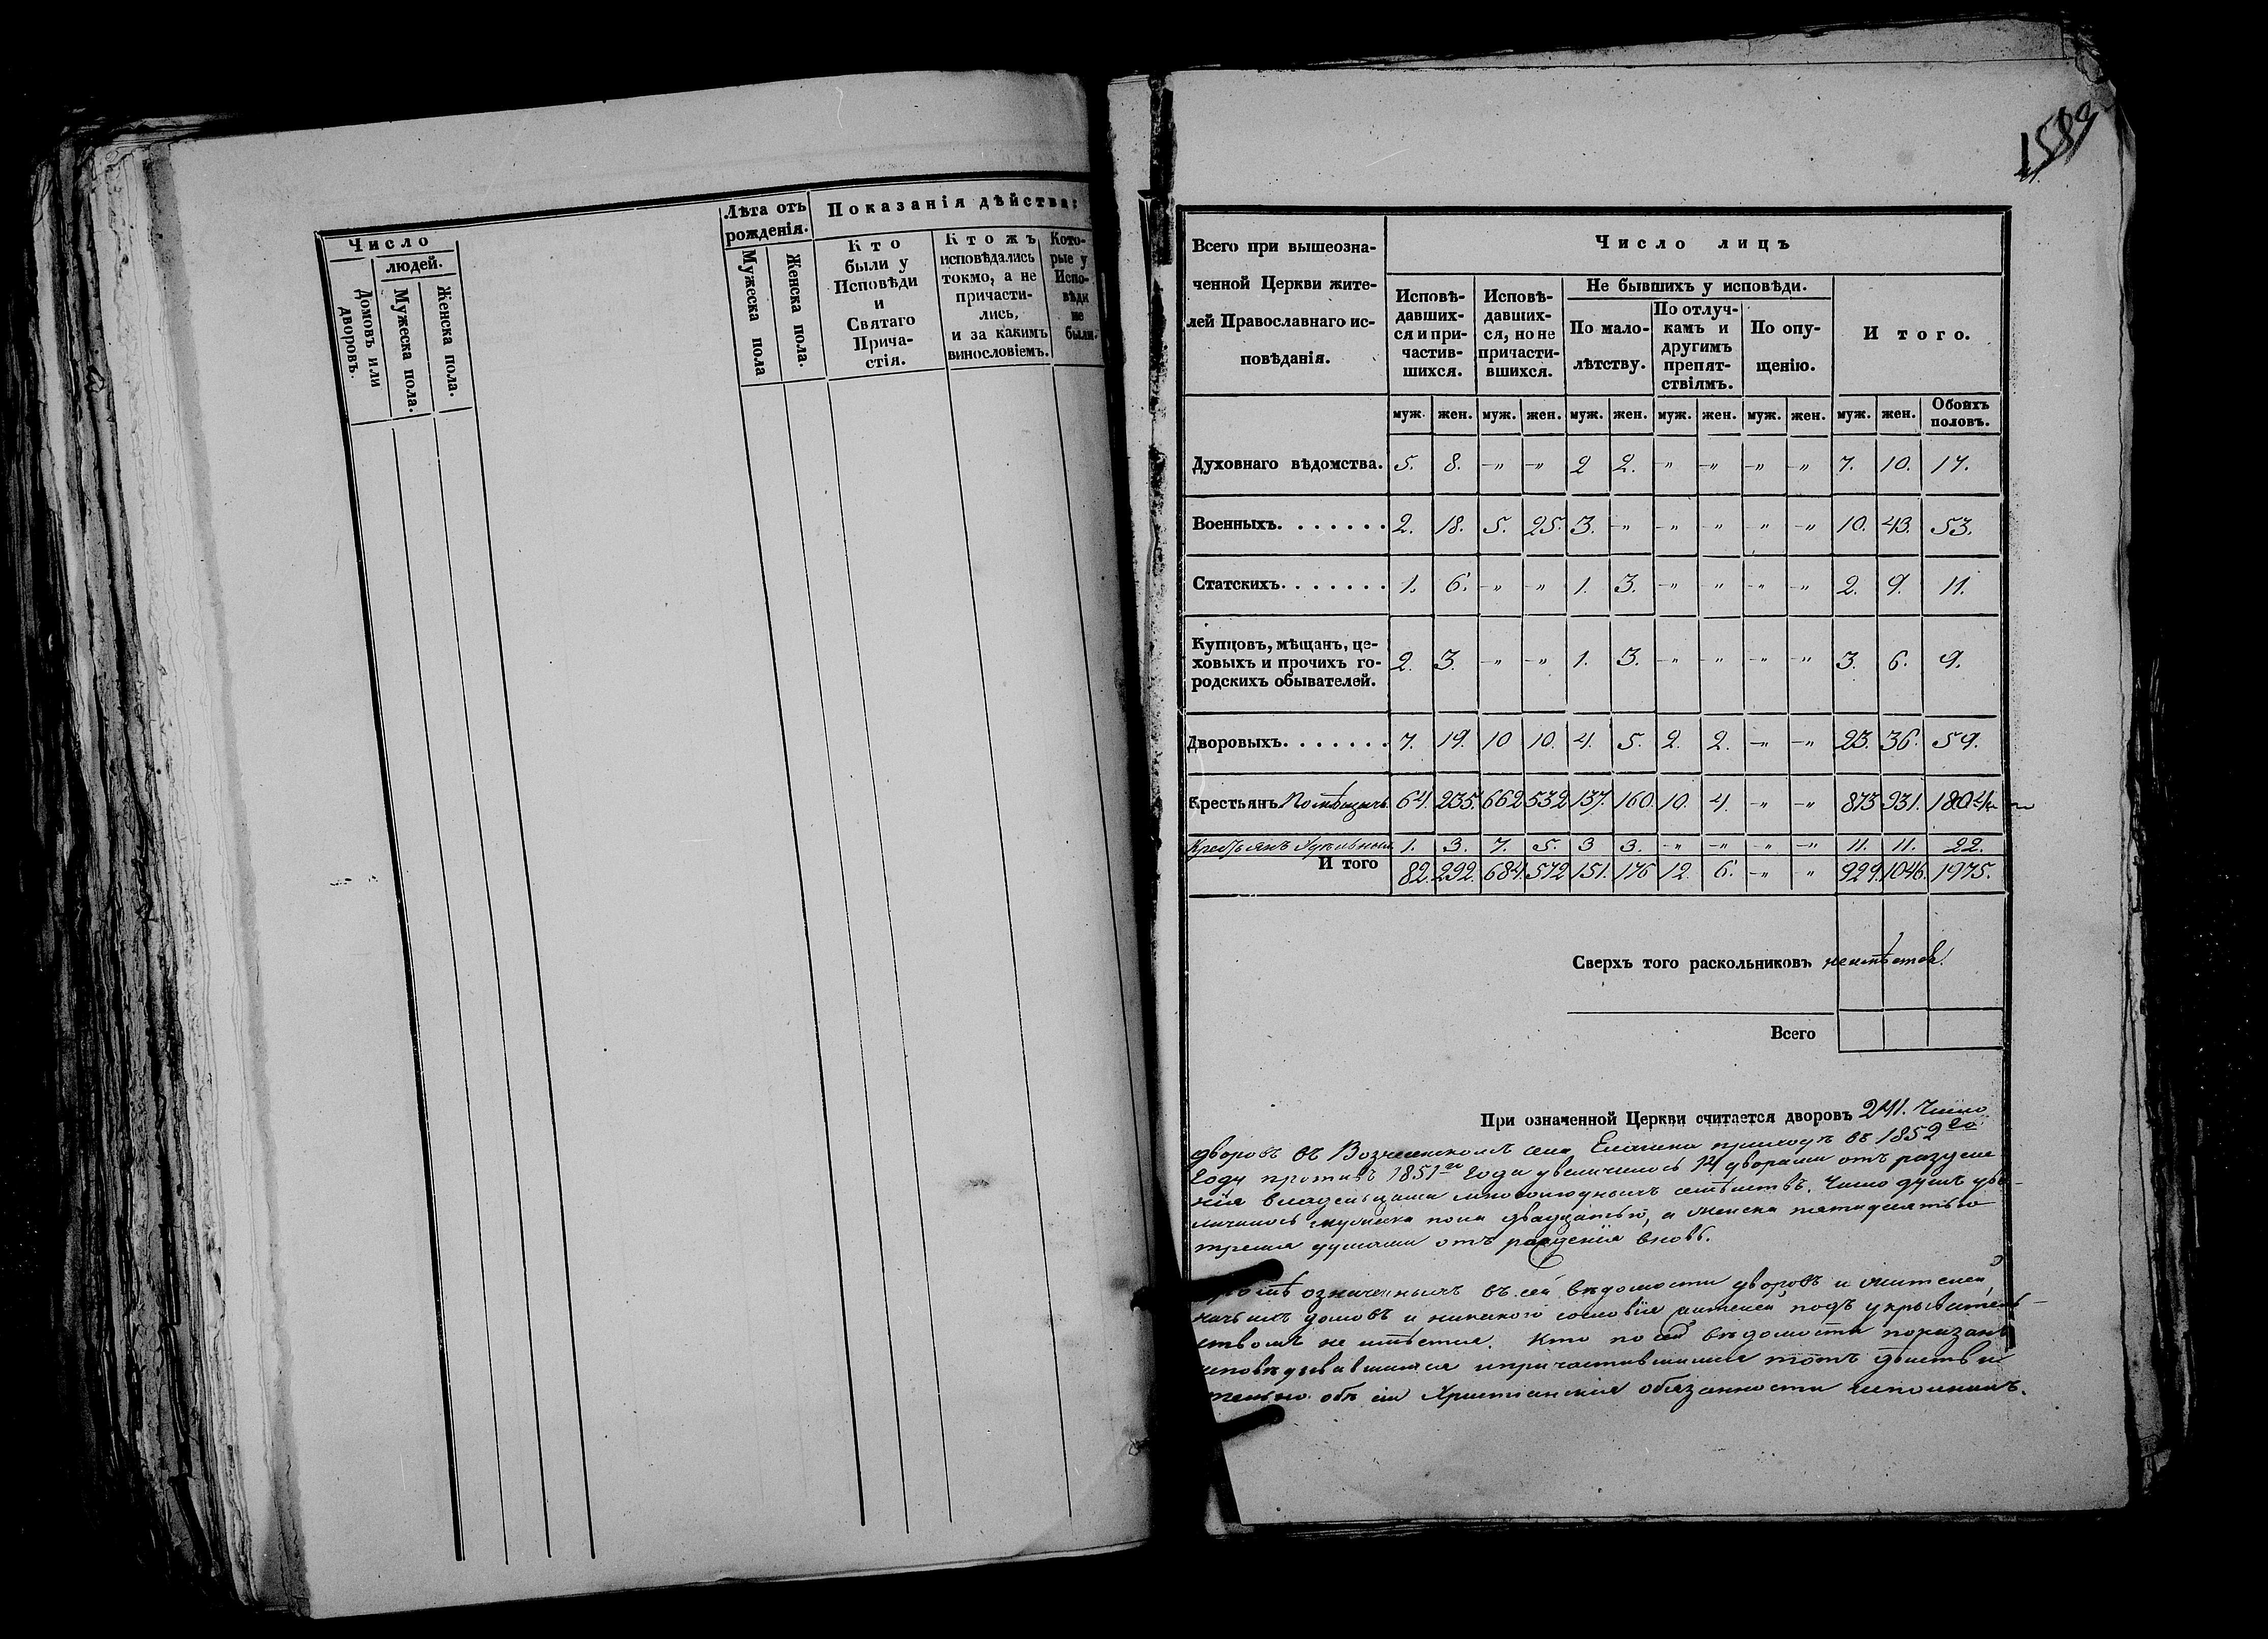 1589
Число
людей.
Домовъ или дворовъ.
Мужеска пола.
Женска пола.
Лѣта отъ рожденія.
Мужеска пола
Женска пола.
Показанія дѣйства:
Кто были у Исповѣди и Святаго Прича-стія.
Ктожъ исповѣдались токмо, а не причасти-лись, и за какимъ винословіемъ.
Кото-рые у Испо-вѣди не были.
Всего при вышеозна-
ченной Церкви жите-
лей Православнаго ис-
повѣданія.
Число лицъ
Исповѣ-давших-ся и при-частив-шихся.
Исповѣ-давших-ся, но не причасти-вшихся.
Не бывшихъ у исповѣди.
По мало-лѣтству.
По отлуч-камъ и другимъ препят-ствіямъ.
По опу-щенію.
И того.
муж. жен. муж. жен. муж. жен. муж. жен. муж. жен. муж. жен. Обоихъ половъ.
Духовнаго вѣдомства. 5. 8. -„ -„ 2 2. -„ -„ -„ -„ 7. 10. 17.
Военныхъ. . . . . . . 2. 18. 5. 25. 3. -„ -„ -„ -„ -„ 10. 43. 53.
Статскихъ. . . . . . . 1. 6. -„ -„ 1. 3. -„ -„ -„ -„ 2. 9. 11.
Купцовъ, мѣщанъ, це-
ховыхъ и прочихъ го-
родскихъ обывателей. 2. 3. -„ -„ 1. 3. -„ -„ -„ -„ 3. 6. 9.
Дворовыхъ. . . . . . . 7. 19. 10 10. 4. 5. 2. 2. -„ -„ 23. 36. 59.
Крестьянъ Помѣщичь. 64. 235. 662 532 137. 160. 10. 4. -„ -„ 873 931. 1804
Крестьянъ 1. 3. 7. 5. 3 3. -„ -„ -„ -„ 11. 11. 22.
И того 82. 292. 684. 572 151. 176 12. 6. -„ „ 929. 1046. 1975.
Сверхъ того раскольниковъ неимѣется.
Всего
При означенной Церкви считается дворовъ 241. Число
дворовъ въ Вознесенскомъ села приходѣ въ 1852го
году противъ 1851го года увеличилось 14 дворами отъ раздѣле
нія владельцами многолюдныхъ семѣйствъ. Число душъ уве-
личилось мужеска пола двадцатью, а женска пятидесятью
тремя душами отъ рожденія вновь.
Кромѣ означенныхъ въ сей вѣдомости дворовъ и жителей,
ничьихъ домовъ и никакого сословія жителей подъ укрыватель-
ствомъ не имѣется. Кто по сей вѣдомости показанъ
исповѣдывавшимся и причастившимся тотъ дѣйстви
тельно обѣ сіи Христіанскія обязанности исполнилъ.